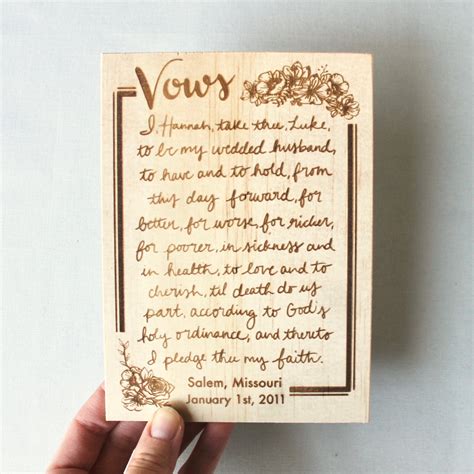 Vows
I, Hannah, take thee, Luke,
to be my wedded husband,
to have and to hold, from
thy day forward, for
better, for worse, for richer,
for poorer, in sickness and
in health, to love and to
cherish, til death do us
part, according to God's
holy ordinance, and thereto
I pledge thee my faith.
Salem, Missouri
January 1st, 2011